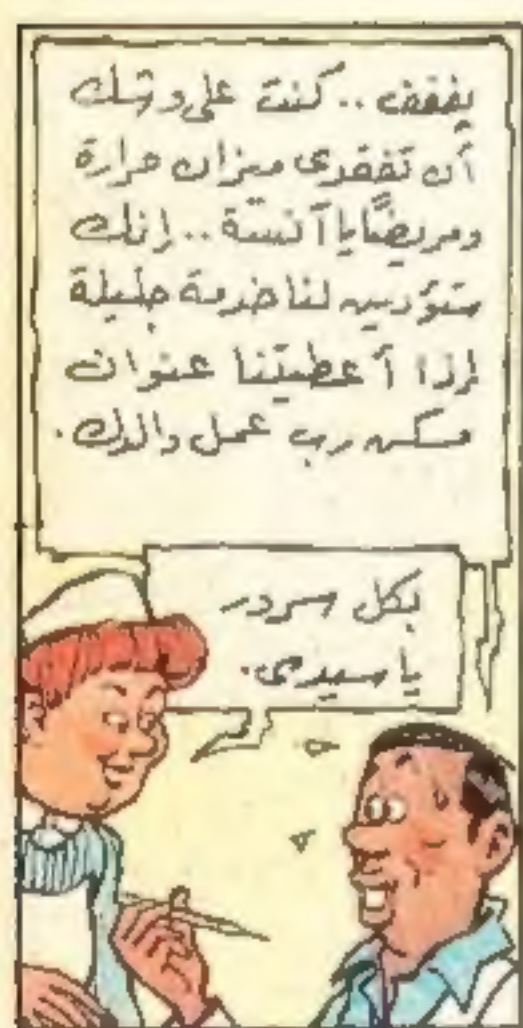 يففف .. كنت على وشك
أن تفقدى ميزان حرارة
ومريضًا يا آنسة .. إنك
ستؤدين لنا خدمة جليلة
إذا أعطيتنا عنوان
مسكن رب عمل والدك .
بكل سرور
يا سيدى .